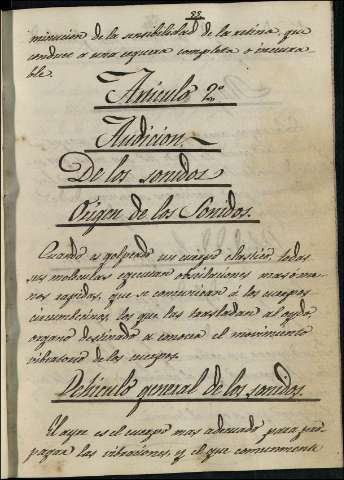 88
minucion de la sensibilidad de la retina, que
conduce a una ceguera completa o incura
ble.
Articulo 2º
Audicion.
De los sonidos
Origen de los Sonidos.
Cuando es golpeado un cuerpo elastico, todas
sus moleculas egecutan obsilaciones mas ó me
nos rapidas, que se comunican á los cuerpos
circumbecinos, los que las trasladan al oydo,
organo destinado a conocer el movimiento
vibratorio de los cuerpos.
Vehiculo general de los sonidos.
El ayre es el cuerpo mas adecuado para pro
pagar las vibraciones, y el que comunmente